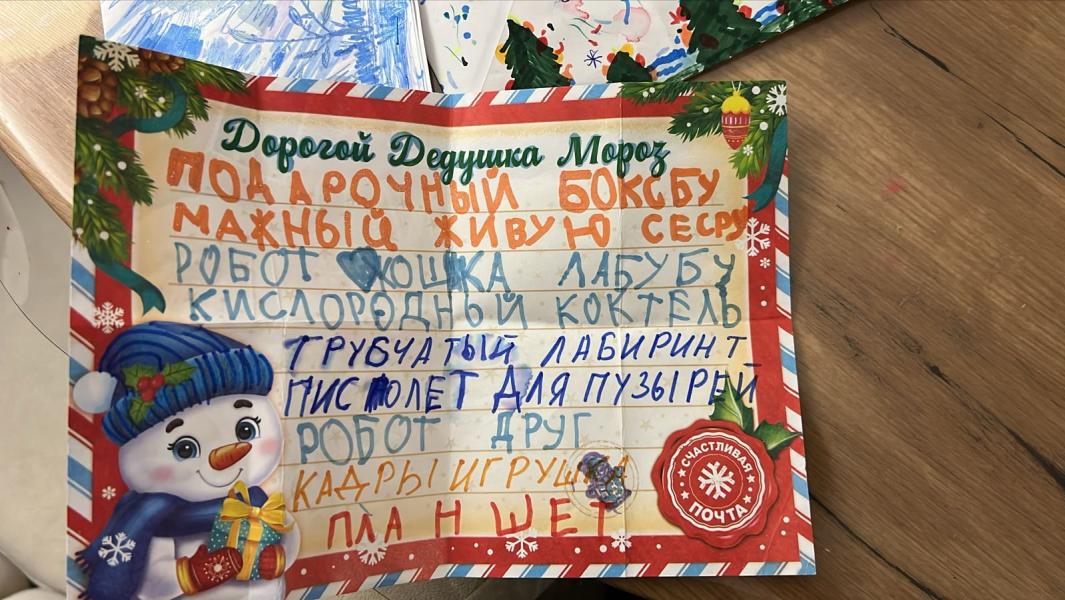 Дорогой Дедушка Мороз
ПОДАРОЧНЫЙ БОКСБУ
МАЖНЫЙ ЖИВУЮ СЕСРУ
РОБОТ КОШКА ЛАБУБУ
КИСЛОРОДНЫЙ КОКТЕЛЬ
ТРУБЧАТЫЙ ЛАБИРИНТ
ПИСТОЛЕТ ДЛЯ ПУЗЫРЕЙ
РОБОТ ДРУГ
КАДРЫ ИГРУШКА
ПЛАНШЕТ
СЧАСТЛИВАЯ
ПОЧТА